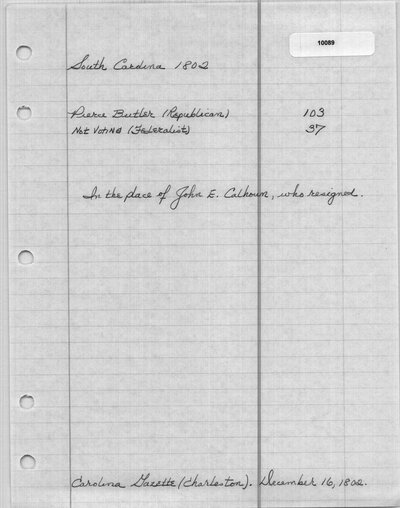 10089
South Carolina 1802
Pierce Butler (Republican) 103
Not Voting (Federalist) 37
In the place of John E. Calhoun, who resigned.
Carolina Gazette (Charleston). December 16, 1802.